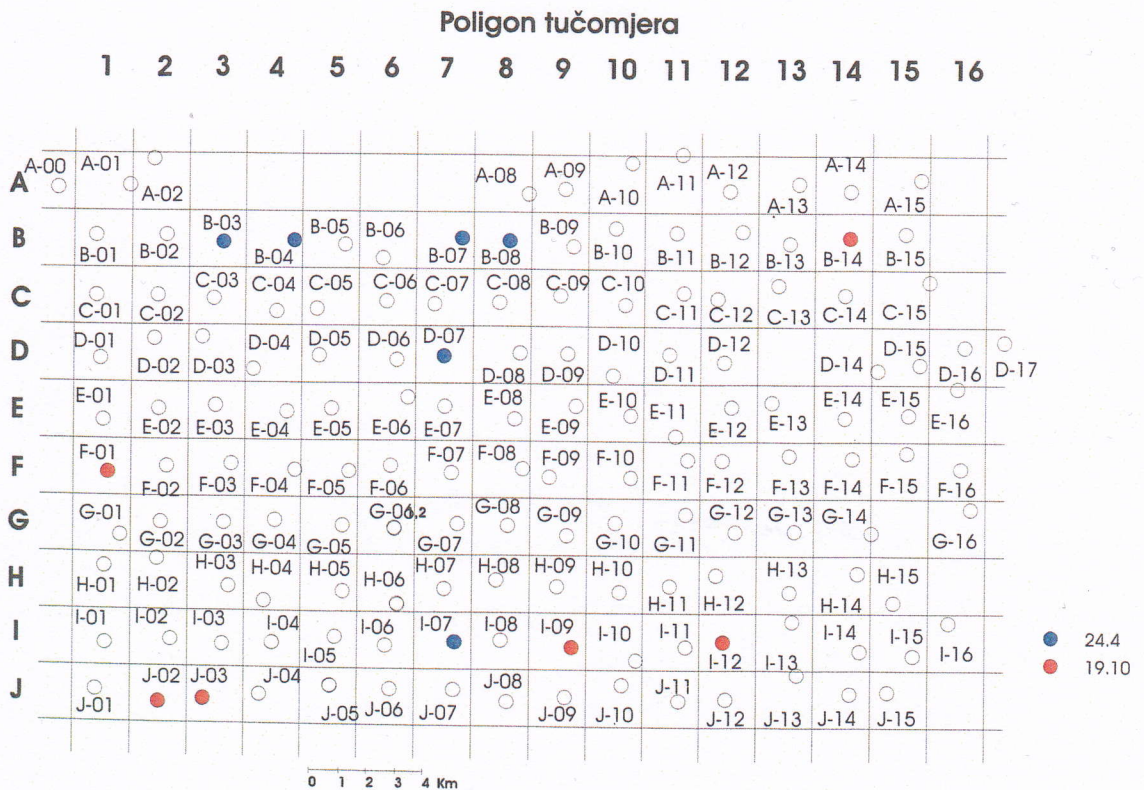 Poligon tučomjera
1 2 3 4 5 6 7 8 9 10 11 12 13 14 15 16
A A-00 A-01 A-02 A-08 A-09 A-10 A-11 A-12 A-13 A-14 A-15
B B-01 B-02 B-03 B-04 B-05 B-06 B-07 B-08 B-09 B-10 B-11 B-12 B-13 B-14 B-15
C C-01 C-02 C-03 C-04 C-05 C-06 C-07 C-08 C-09 C-10 C-11 C-12 C-13 C-14 C-15
D D-01 D-02 D-03 D-04 D-05 D-06 D-07 D-08 D-09 D-10 D-11 D-12 D-14 D-15 D-16 D-17
E E-01 E-02 E-03 E-04 E-05 E-06 E-07 E-08 E-09 E-10 E-11 E-12 E-13 E-14 E-15 E-16
F F-01 F-02 F-03 F-04 F-05 F-06 F-07 F-08 F-09 F-10 F-11 F-12 F-13 F-14 F-15 F-16
G G-01 G-02 G-03 G-04 G-05 G-06 G-07 G-08 G-09 G-10 G-11 G-12 G-13 G-14 G-16
H H-01 H-02 H-03 H-04 H-05 H-06 H-07 H-08 H-09 H-10 H-11 H-12 H-13 H-14 H-15
I I-01 I-02 I-03 I-04 I-05 I-06 I-07 I-08 I-09 I-10 I-11 I-12 I-13 I-14 I-15 I-16
J J-01 J-02 J-03 J-04 J-05 J-06 J-07 J-08 J-09 J-10 J-11 J-12 J-13 J-14 J-15
24.4
19.10
0 1 2 3 4 Km